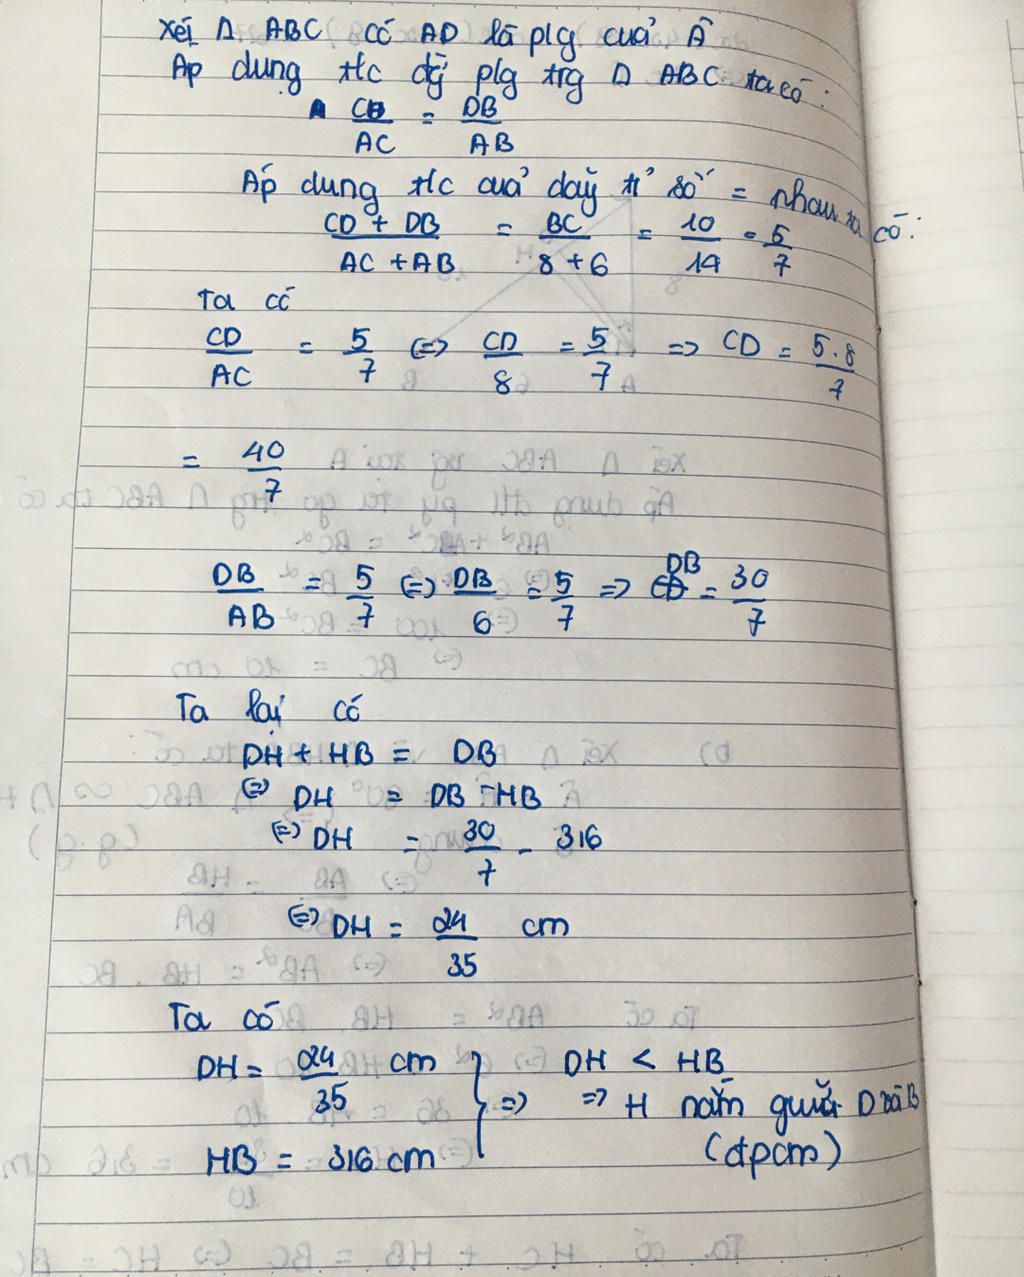 Xét Δ ABC có AD là p/g của Â
Áp dụng t/c đg p/g trg Δ ABC ta có:
CD/AC = DB/AB
Áp dụng t/c của dãy tỉ số = nhau ta có:
CD + DB / AC + AB = BC / 8 + 6 = 10/14 = 5/7
Ta có
CD/AC = 5/7 ⇔ CD/8 = 5/7 => CD = 5.8/7
= 40/7
DB/AB = 5/7 ⇔ DB/6 = 5/7 => DB = 30/7
Ta lại có
DH + HB = DB
⇔ DH = DB - HB
⇔ DH = 30/7 - 3,6
⇔ DH = 24/35 cm
Ta có
DH = 24/35 cm
HB = 3,6 cm
} => DH < HB
=> H nằm giữa D và B
(đpcm)